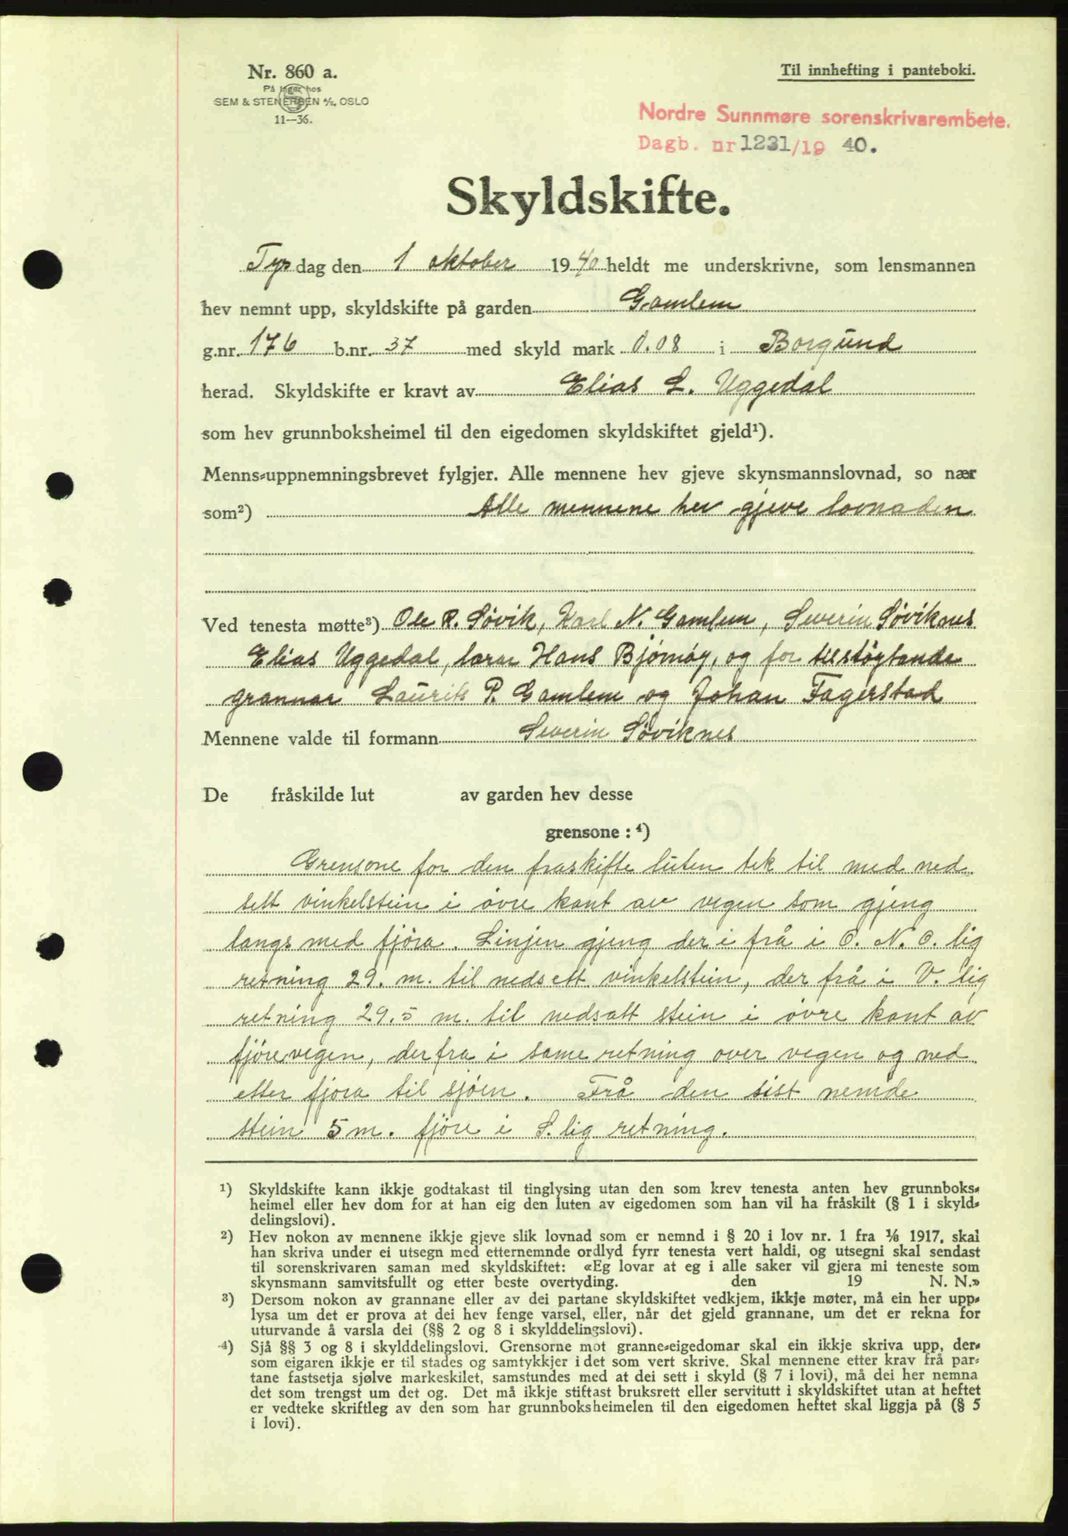 Nr. 860 a.
Til innhefting i panteboki.
På lager hos
SEM & STENERSEN A/S, OSLO
11—36.
Nordre Sunnmøre sorenskrivarembete.
Dagb. nr 1231/19 40.
Skyldskifte.
Tys dag den 1 oktober 1940 heldt me underskrivne, som lensmannen
hev nemnt upp, skyldskifte på garden Gamlem
g.nr. 176 b.nr. 37 med skyld mark 0.08 i Borgund
herad. Skyldskifte er kravt av Elias L. Uggedal
som hev grunnboksheimel til den eigedomen skyldskiftet gjeld¹).
Menns-uppnemningsbrevet fylgjer. Alle mennene hev gjeve skynsmannslovnad, so nær
som²) Alle mennene hev gjeve lovnaden
Ved tenesta møtte³) Ole R. Søvik, Karl N. Gamlem, Severin Søviknes
Elias Uggedal, lærar Hans Bjørnøy, og for tilstøytande
grannar Laurits P. Gamlem og Johan Fagerstad
Mennene valde til formann Severin Søviknes
De fråskilde lut av garden hev desse
grensone : ⁴)
Grensone for den fraskifte luten tek til med ned
sett vinkelstein i øvre kant av vegen som gjeng
langs med fjøra. Linjen gjeng der i frå i O. N. O. lig
retning 29. m. til nedsett vinkelstein, der frå i V. lig
retning 29,5 m. til nedsatt stein i øvre kant av
fjørevegen, der fra i same retning over vegen og ned
etter fjøra til sjøen. Frå den sist nemde
stein 5 m. fjøre i S. lig retning.
¹) Skyldskifte kann ikkje godtakast til tinglysing utan den som krev tenesta anten hev grunnboks-
heimel eller hev dom for at han eig den luten av eigedomen som han vil ha fråskilt (§ 1 i skyld-
delingslovi).
²) Hev nokon av mennene ikkje gjeve slik lovnad som er nemnd i § 20 i lov nr. 1 fra ⅙ 1917, skal
han skriva under ei utsegn med etternemnde ordlyd fyrr tenesta vert haldi, og utsegni skal sendast
til sorenskrivaren saman med skyldskiftet: «Eg lovar at eg i alle saker vil gjera mi teneste som
skynsmann samvitsfullt og etter beste overtyding. den 19 N. N.»
³) Dersom nokon av grannane eller av dei partane skyldskiftet vedkjem, ikkje møter, må ein her upp-
lysa um det er prova at dei hev fenge varsel, eller, når det gjeld grannane, um det er rekna for
uturvande å varsla dei (§§ 2 og 8 i skylddelingslovi).
⁴) Sjå §§ 3 og 8 i skylddelingslovi. Grensorne mot granne-eigedomar skal ein ikkje skriva upp, der-
som eigaren ikkje er til stades og samtykkjer i det som vert skrive. Skal mennene etter krav frå par-
tane fastsetja sjølve markeskilet, samstundes med at dei sett i skyld (§ 7 i lovi), må dei her nemna
det som trengst um det og. Det må ikkje stiftast bruksrett eller servitutt i skyldskiftet utan at heftet
er vedteke skriftleg av den som har grunnboksheimelen til den eigedomen heftet skal liggja på (§ 5
i lovi).